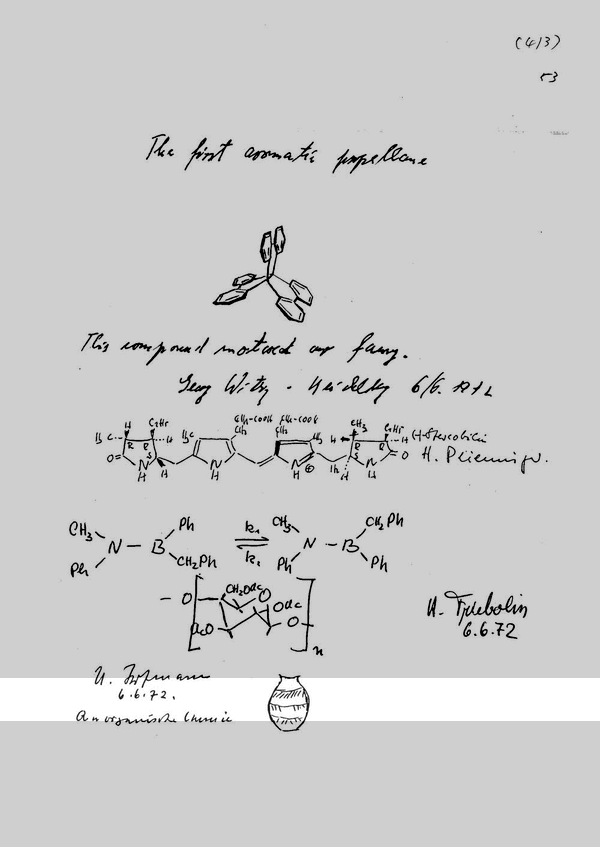 (413)
53
The first aromatic propellane
This compound mustered our fancy.
Georg Wittig - Heidelberg 6/6. 1972
H H
C2H5
H3C
CH2-COOH CH2-COOH
CH3
C2H5
O=
R R S
N H
N H
N H
N H
=O
H. Plieninger
CH3
N - B
Ph
CH2Ph
Ph
k1
k2
CH3
N - B
CH2Ph
Ph
Ph
- O
CH2OAc
O
OAc
AcO
O -
n
H. Friebolin
6.6.72
U. Hofmann
6.6.72.
Anorganische Chemie